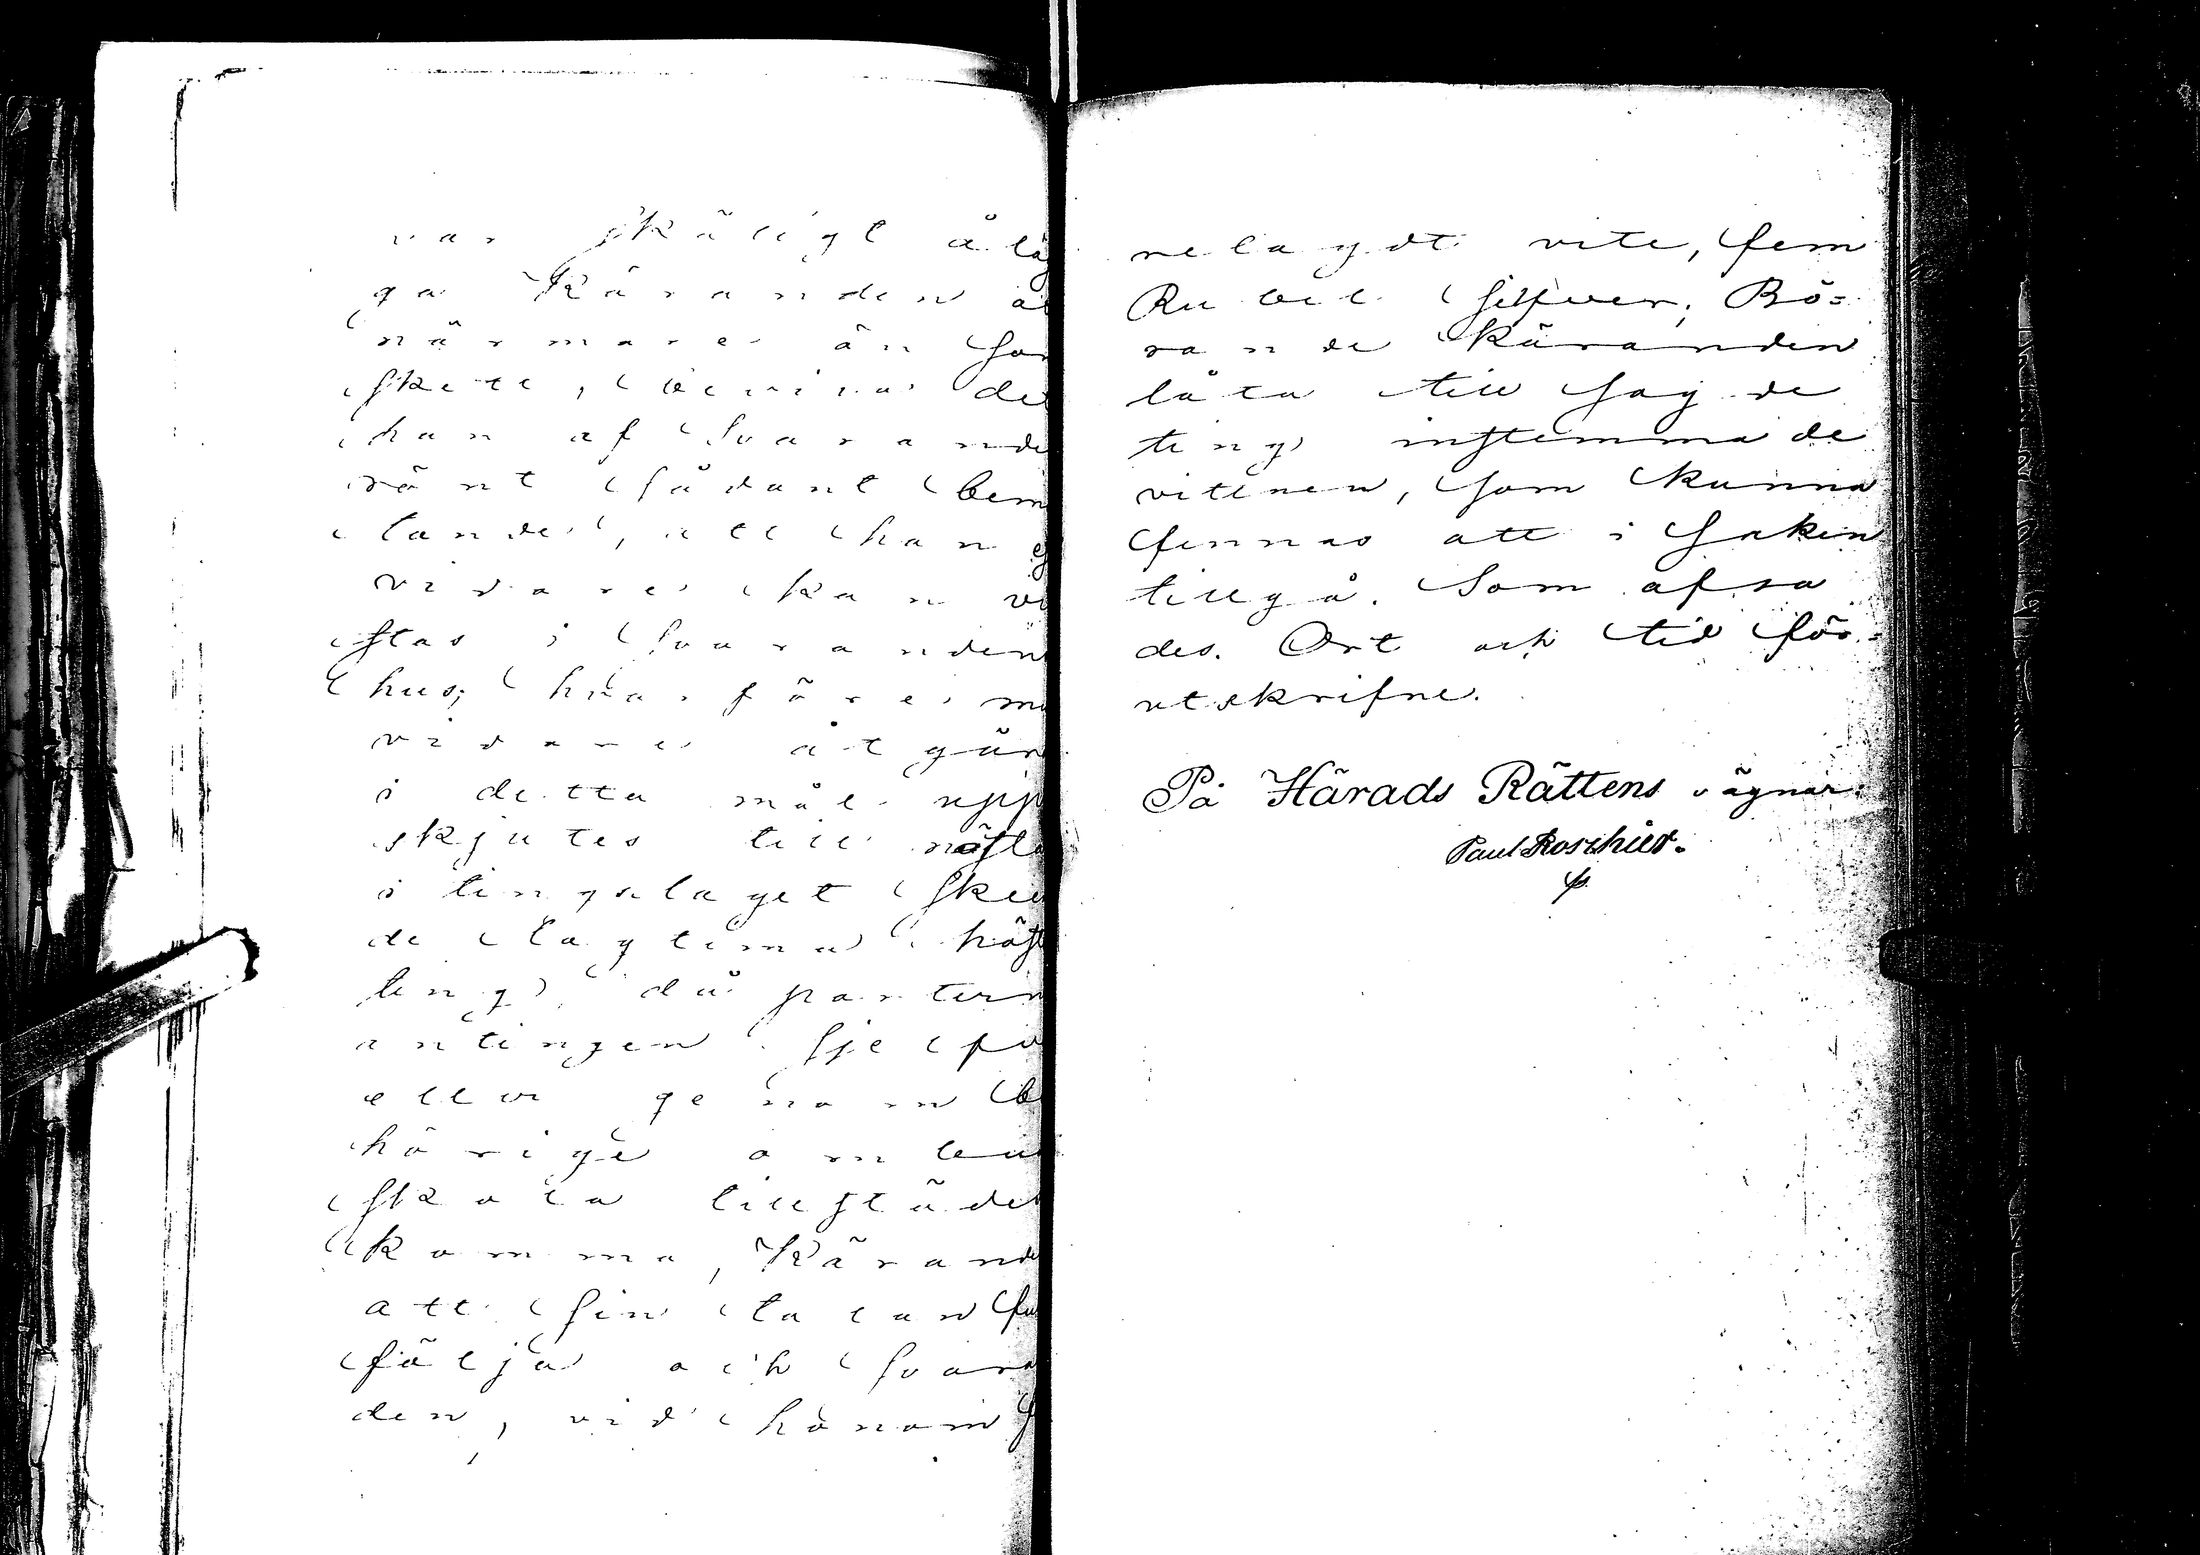 var skäligt åläg
ga Käranden at
närmare än som
skett, bevisa det
han af Svarande
rönt sådant bem
tande, att han ej
vidare kan vi
stas i Svaranden
hus; hvarföre m
vidare åtgär
i detta mål upp
skjutes till nästa
i tingslaget skee
de lagtima höst
ting, då parterne
antingen sjelfve
eller genom be
hörige ombud
skola tillstädes
komma, Kärande
att sin talan full
följa och Svara
den, vid honom f
relagdt vite, fem
Rubel silfver; Bö=
rande Käranden
låta till sagde
ting instemma de
vittnen, som kunna
finnas att i saken
tillgå. Som afsa
des. Ort och tid för=
utskrifne.
På Härads Rättens vägnar:
Paul Roschier.